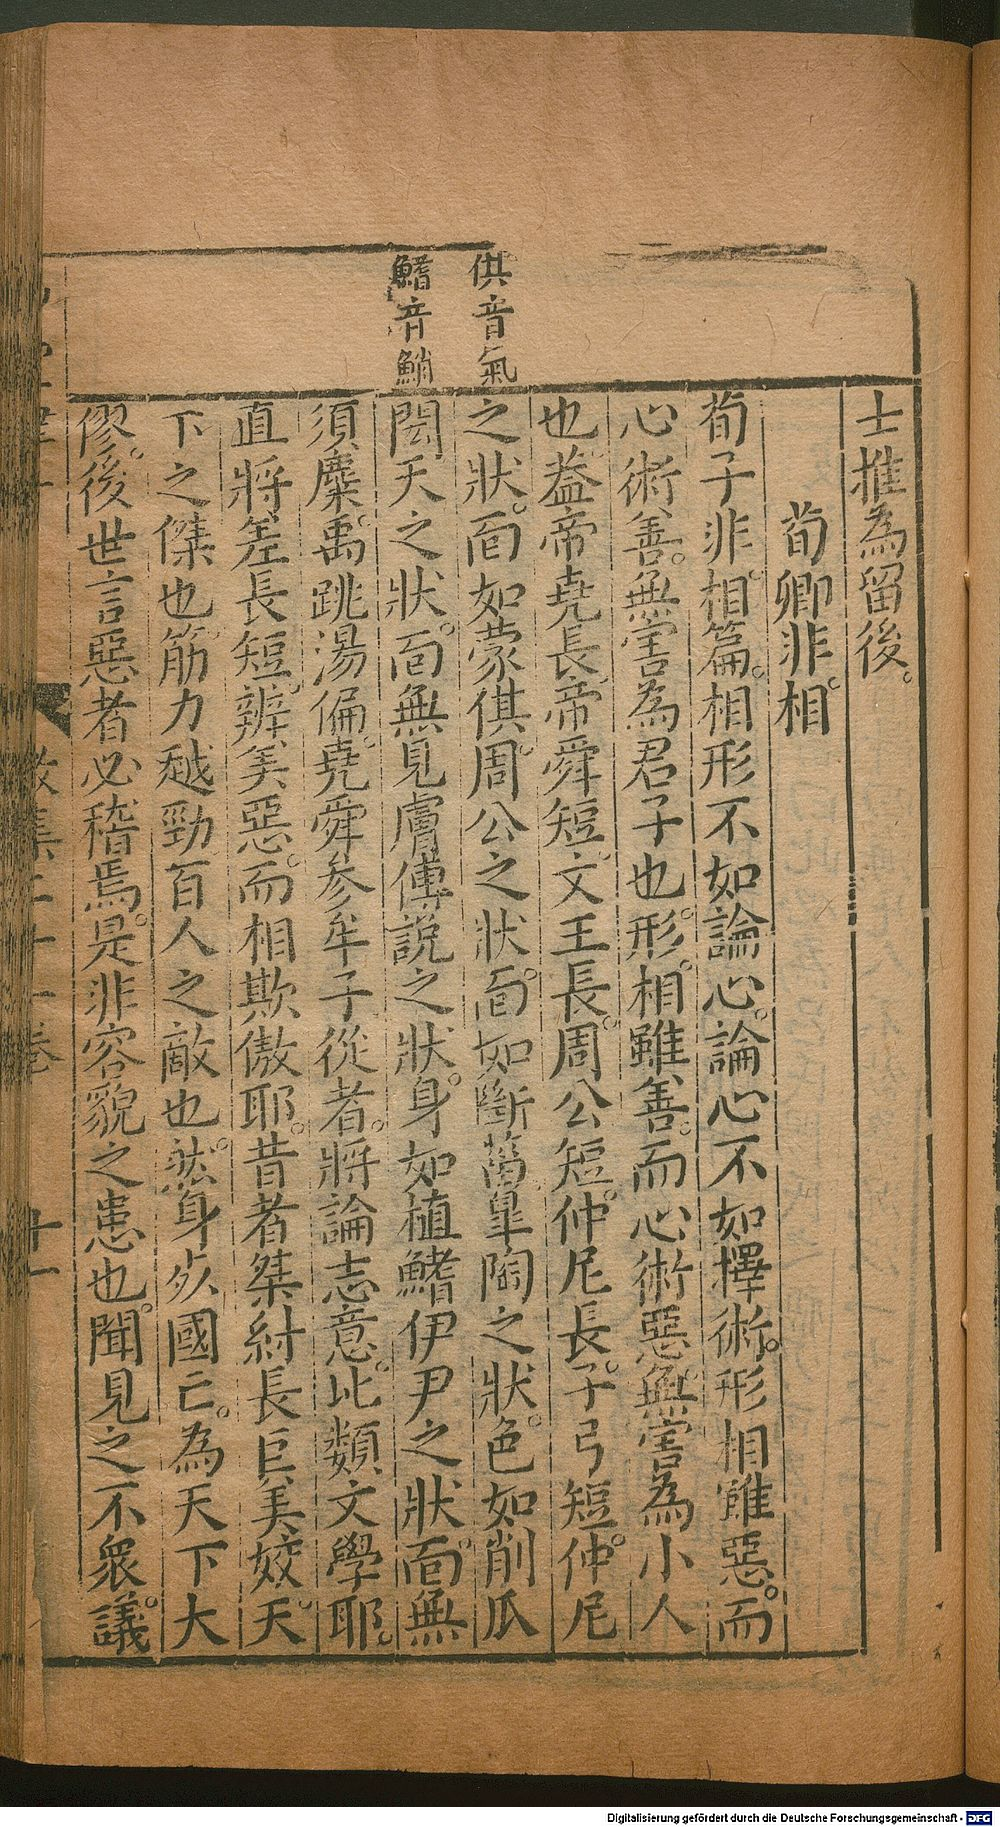 供音氣
鰭音鮹
士推為留後。
荀卿非相。
荀子非相篇。相形不如論心。論心不如擇術。形相雖惡。而
心術善。無害為君子也。形相雖善。而心術惡。無害為小人
也。蓋帝堯長。帝舜短。文王長。周公短。仲尼長。子弓短。仲尼
之狀。面如蒙倛。周公之狀。面如斷菑。皐陶之狀。色如削瓜
閎夭之狀。面無見膚。傅說之狀。身如植鰭。伊尹之狀。面無
須麋。禹跳湯偏。堯舜参牟子。從者。將論志意。比類文學耶。
直將差長短。辨美惡。而相欺傲耶。昔者桀紂長巨美姣。天
下之傑也。筋力越勁。百人之敵也。然身死國亡。為天下大
僇。後世言惡者必稽焉。是非容貌之患也。聞見之不衆。議
集二十一卷
十一
Digitalisierung gefördert durch die Deutsche Forschungsgemeinschaft - DFG